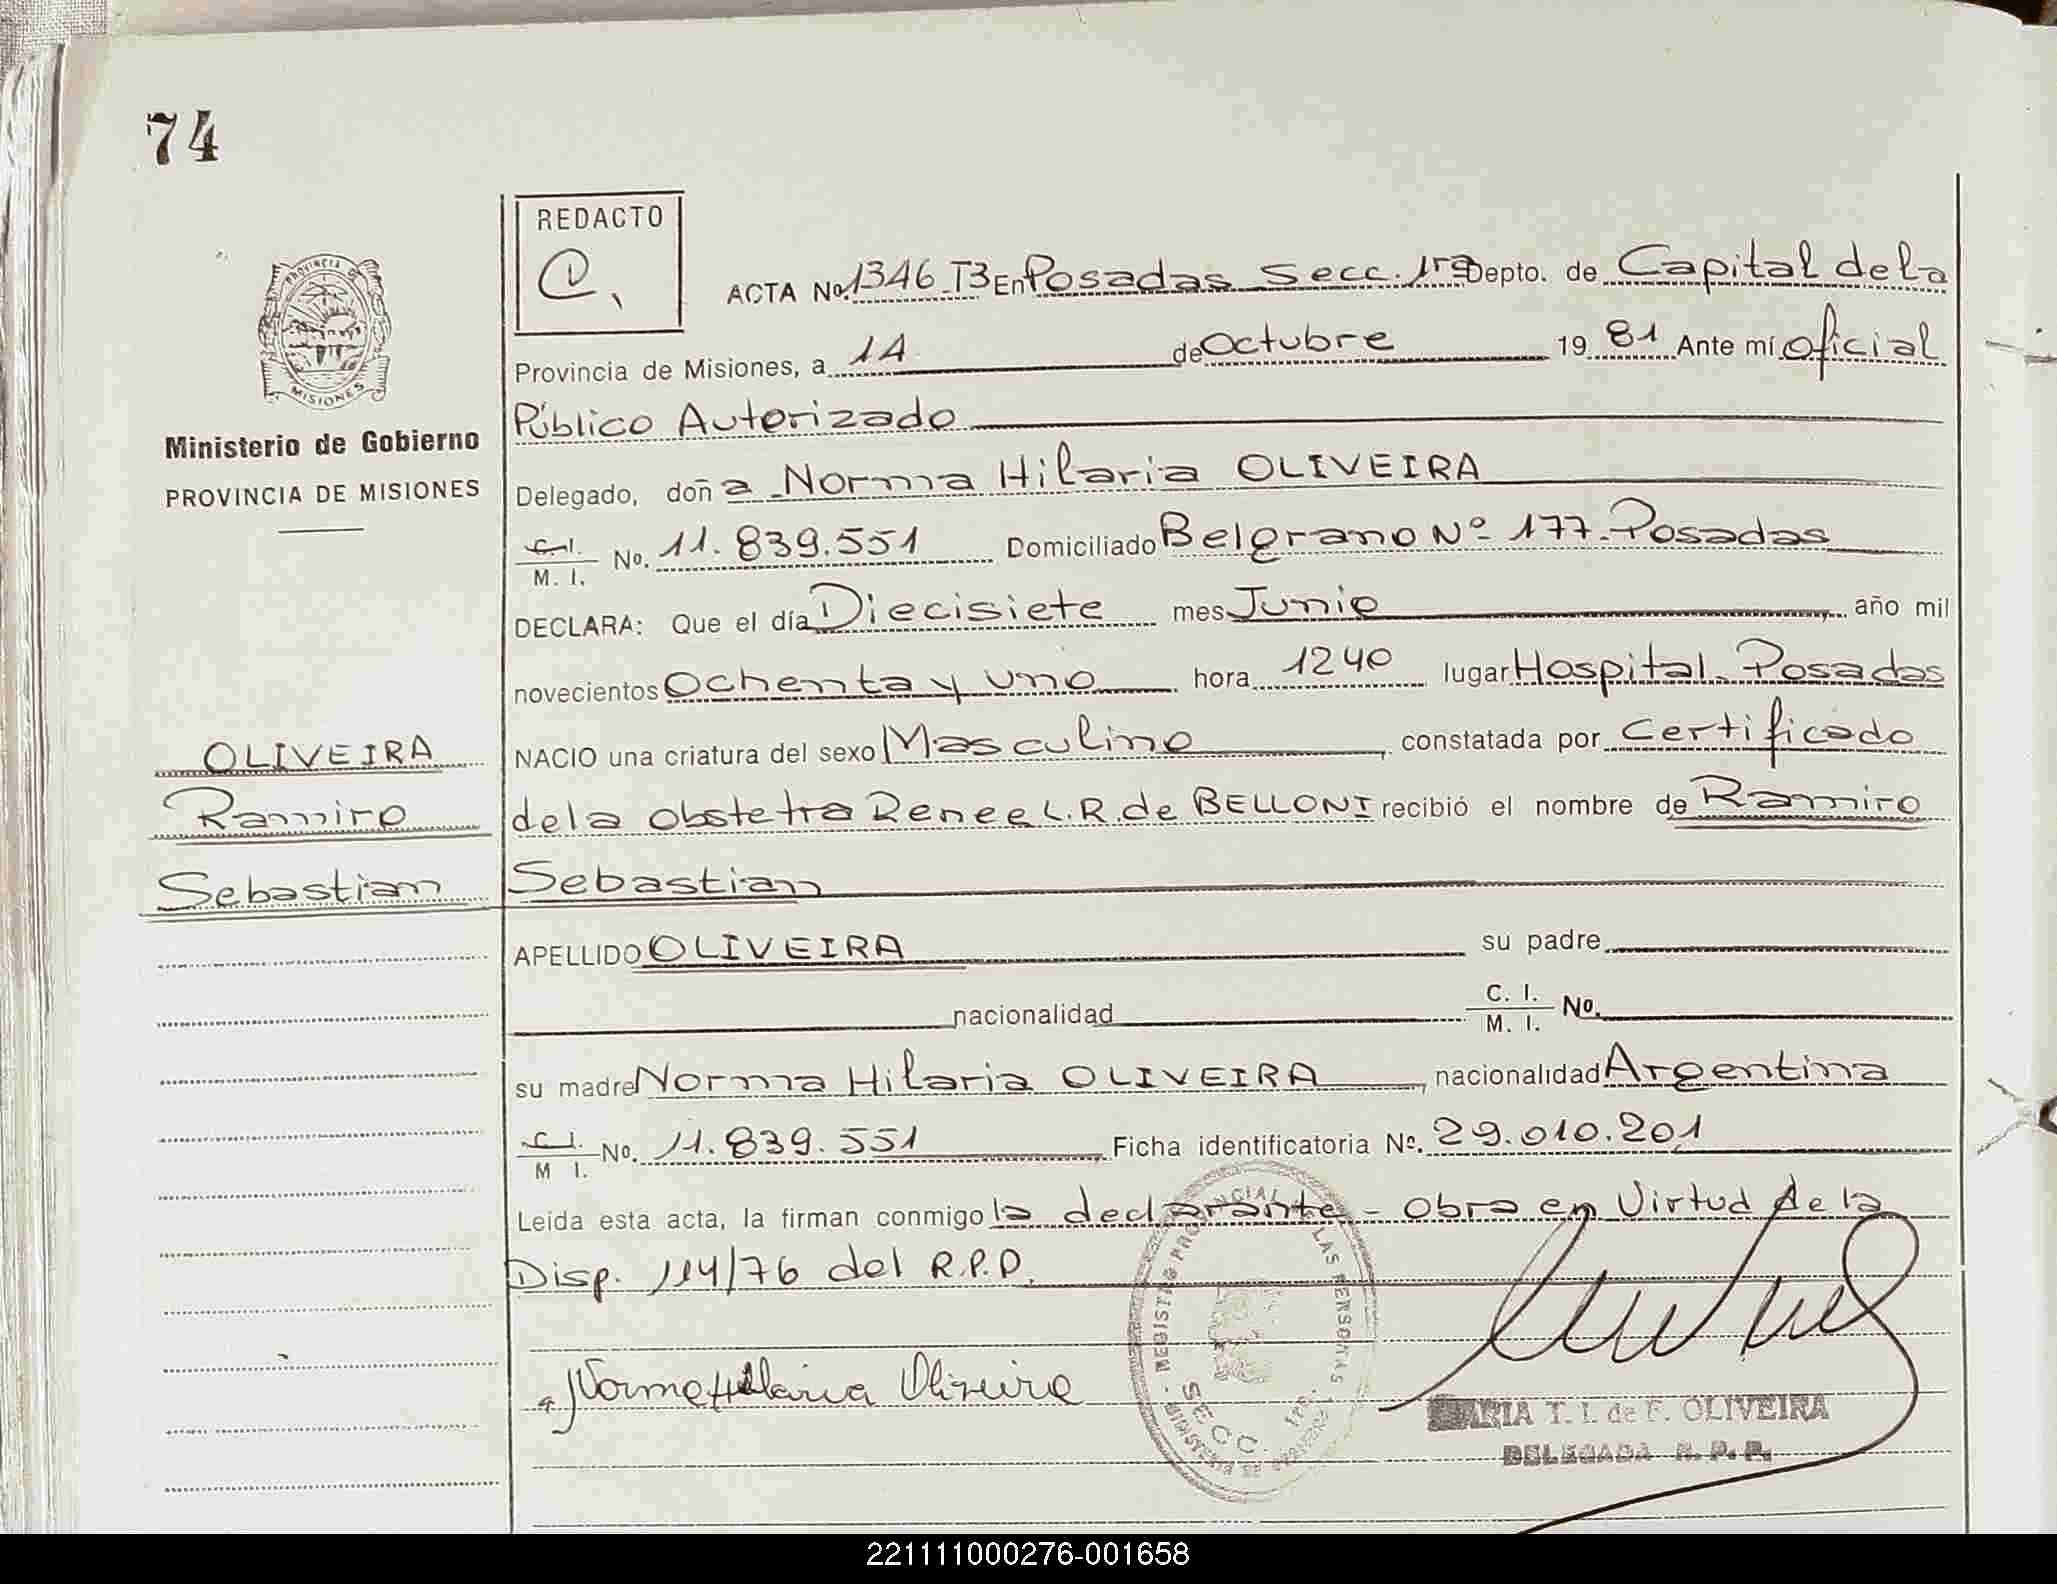 74
REDACTO
C.
PROVINCIA DE
MISIONES
ACTA No. 1346 T3 En Posadas Secc. 1ra Depto. de Capital de la
Provincia de Misiones, a 14 de Octubre 19 81 Ante mí oficial
Público Autorizado
Ministerio de Gobierno
PROVINCIA DE MISIONES
Delegado, doña Norma Hilaria OLIVEIRA
C.I. / M. I. No. 11.839.551 Domiciliado Belgrano Nº 177-Posadas
DECLARA: Que el día Diecisiete mes Junio año mil
novecientos Ochenta y uno hora 1240 lugar Hospital. Posadas
NACIO una criatura del sexo Masculino, constatada por Certificado
de la obstetra Renee L.R. de BELLONI recibió el nombre de Ramiro
Sebastian
OLIVEIRA
Ramiro
Sebastian
APELLIDO OLIVEIRA su padre
nacionalidad C. I. / M. I. No.
su madre Norma Hilaria OLIVEIRA, nacionalidad Argentina
C I. / M I. No. 11.839.551, Ficha identificatoria Nº. 29.010.201
Leída esta acta, la firman conmigo la declarante - Obra en Virtud de la
Disp. 114/76 del R.P.P.
Norma Hilaria Oliveira
REGISTRO PROVINCIAL LAS PERSONAS
SECC. 1ra.
MARIA T. I. de F. OLIVEIRA
DELEGADA R. P. P.
221111000276-001658